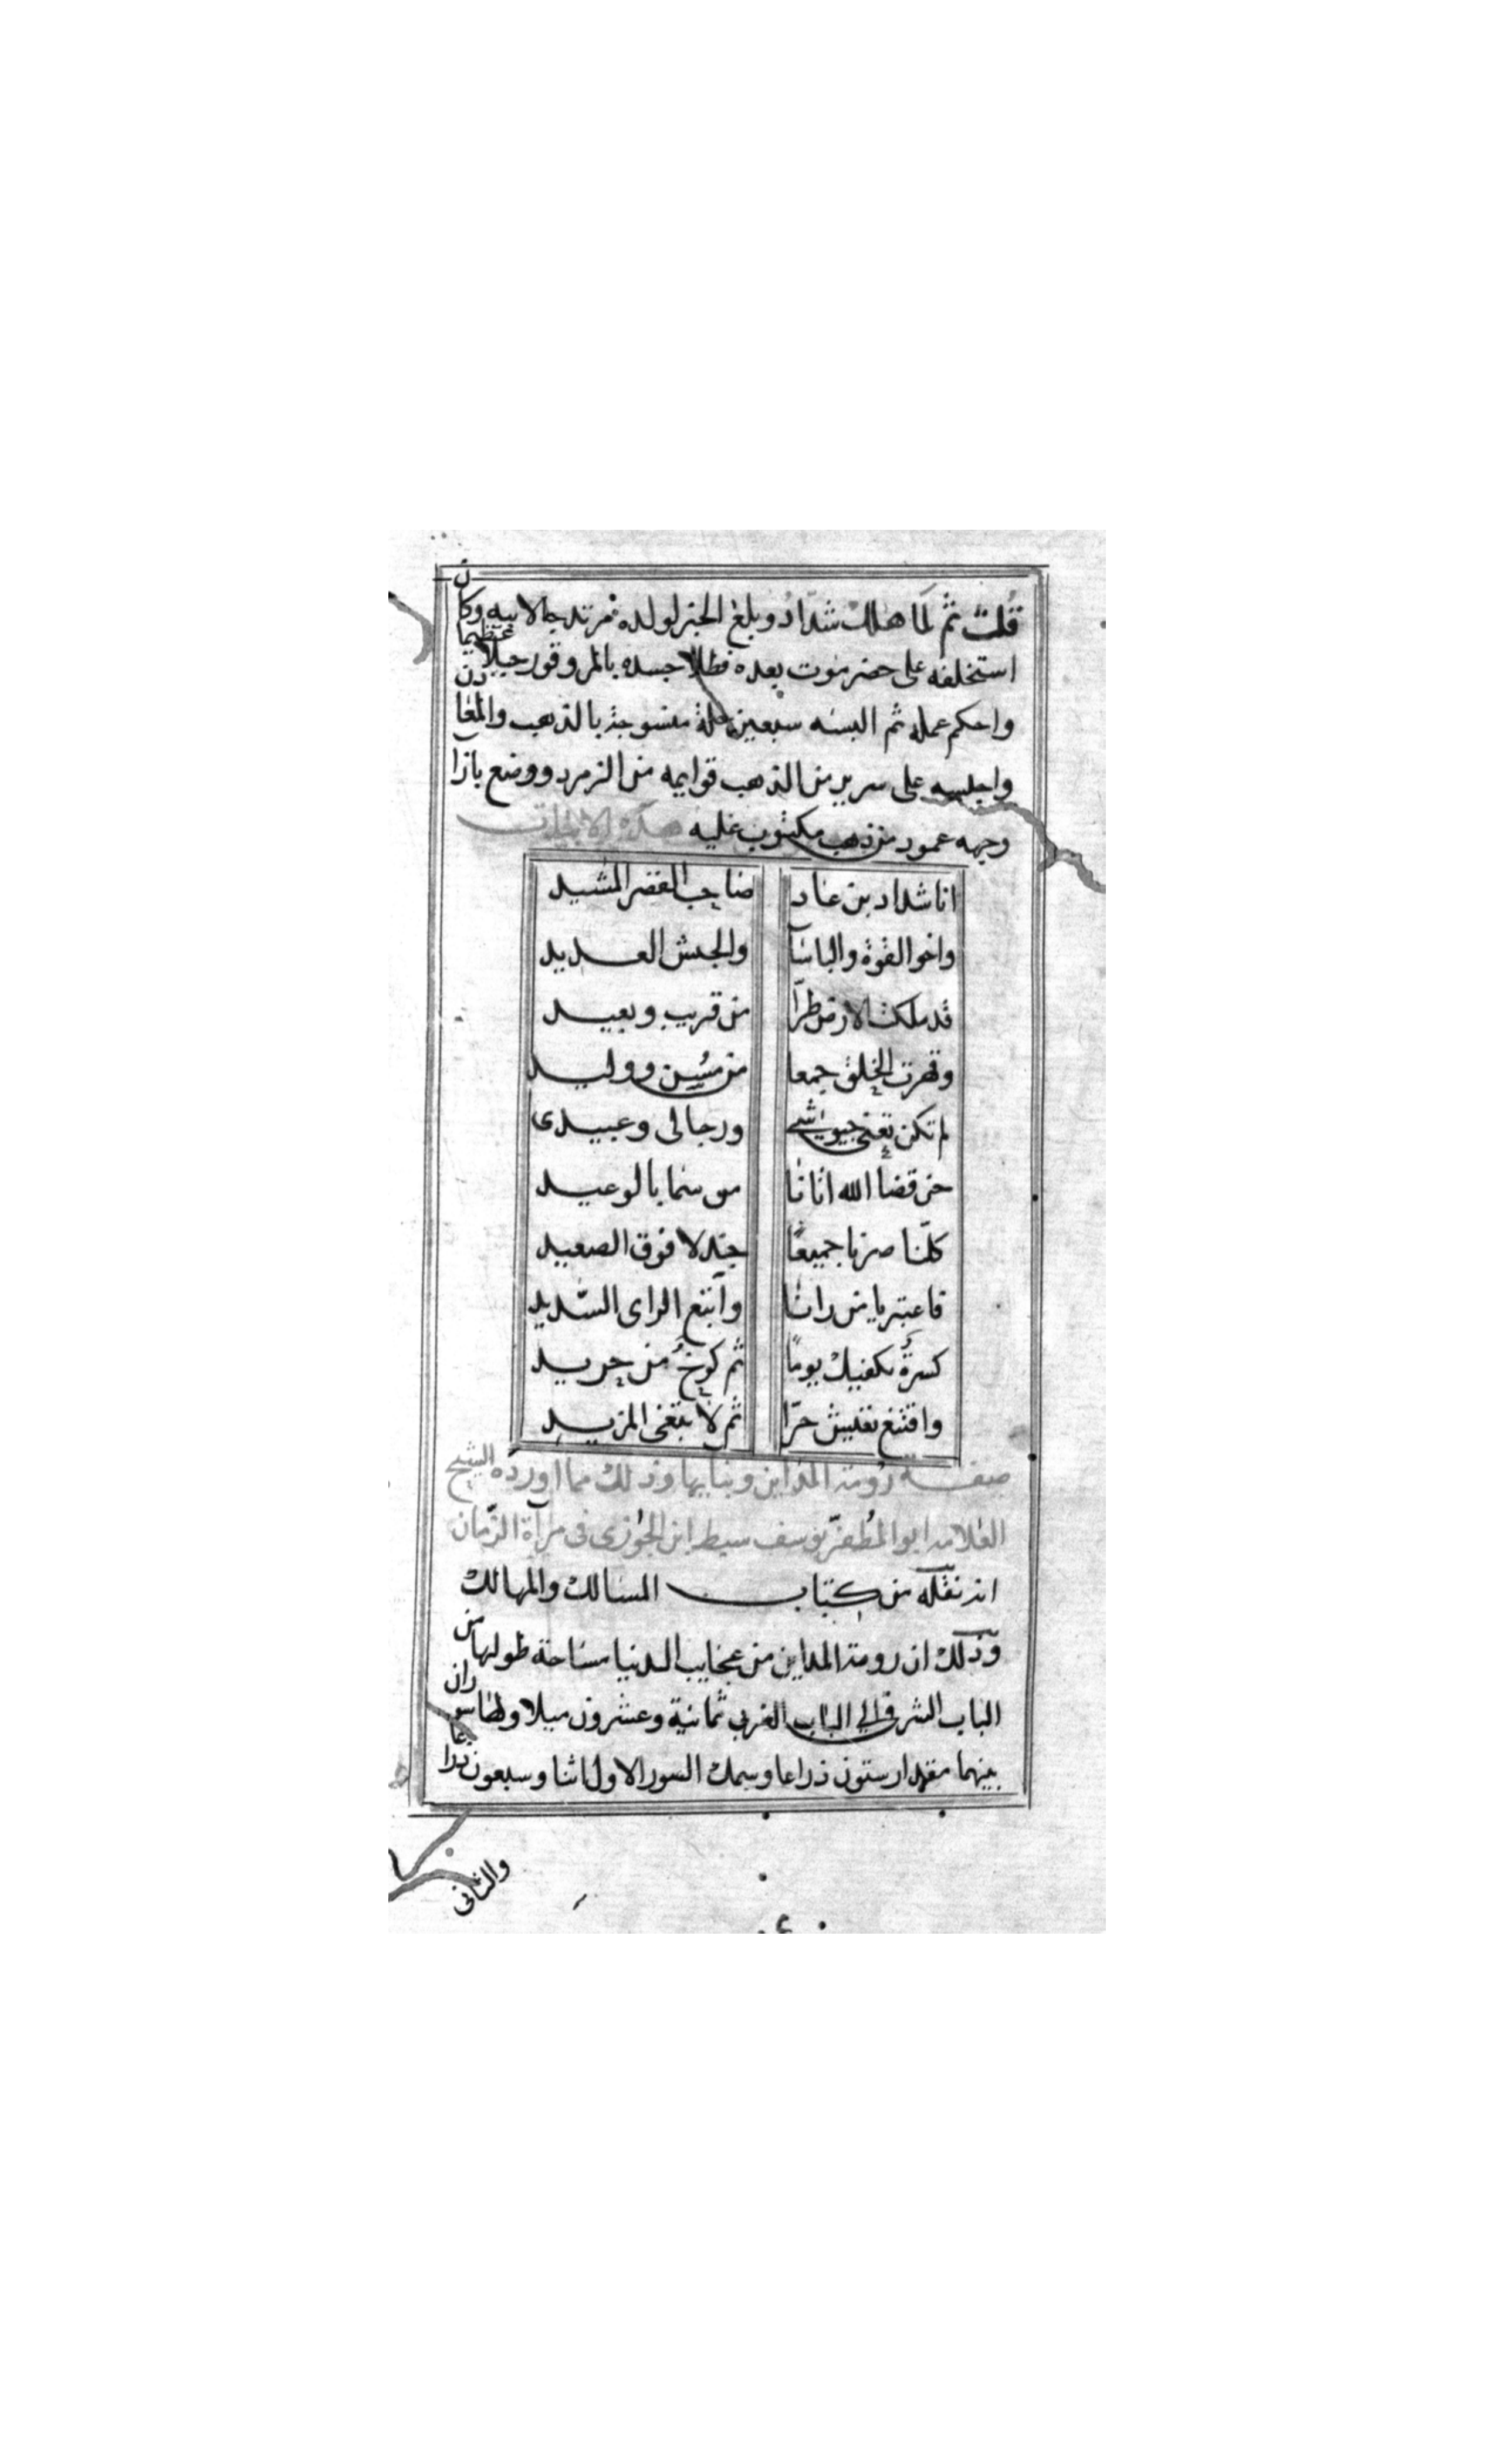 قلت ثم لما هلك شداد وبلغ الخبر لولده مرثد جا لابيه وكان
استخلفه على حضرموت بعده فطلا جسده بالمر وقور جبلا عظيما
واحكم عمله ثم البسه سبعين حلة منسوجة بالذهب والمعادن
واجلسه على سرير من الذهب قوايمه من الزمرد ووضع بازا
وجهه عمود من ذهب مكتوب عليه هذه الابيات
انا شداد بن عاد صاحب القصر المشيد
واخو القوة والباسا والجيش العديد
قد ملكت الارض طرا من قريب وبعيد
وقهرت الخلق جمعا من مسن ووليد
لم تكن تغني جيوشي ورجالى وعبيدى
حين قضا الله اتانا من سما بالوعيد
كلنا صرنا جميعا جندلا فوق الصعيد
فاعتبر يا من رانا واتبع الراى السديد
كسرة تكفيك يوما ثم كوخ من جريد
واقتنع تعيش حرا ثم لا تبتغى المزيد
صفة رومة المداين وبنايها وذلك مما اورده الشيخ
العلامه ابو المظفر يوسف سبط ابن الجوزى فى مرآة الزمان
انه نقله من كتاب المسالك والمهالك
وذلك ان رومة المداين من عجايب الدنيا مساحة طولها من
الباب الشرقي الي الباب الغربي ثمانية وعشرون ميلا ولها سوران
بينهما مقدار ستون ذراعا وسمك السور الاول اثنا وسبعون ذراعا
والثانى